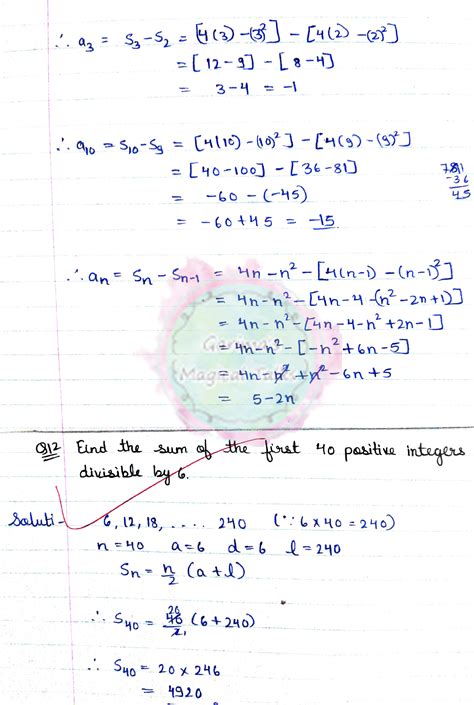 ∴ a₃ = S₃ - S₂ = [4(3) - (3)²] - [4(2) - (2)²]
= [12 - 9] - [8 - 4]
= 3 - 4 = -1
∴ a₁₀ = S₁₀ - S₉ = [4(10) - (10)²] - [4(9) - (9)²]
= [40 - 100] - [36 - 81]
= -60 - (-45)
= -60 + 45 = -15
81
-36
45
∴ aₙ = Sₙ - Sₙ₋₁ = 4n - n² - [4(n-1) - (n-1)²]
= 4n - n² - [4n - 4 - (n² - 2n + 1)]
= 4n - n² - [4n - 4 - n² + 2n - 1]
= 4n - n² - [-n² + 6n - 5]
= 4n - n² + n² - 6n + 5
= 5 - 2n
Q12 Find the sum of the first 40 positive integers
divisible by 6.
Soluti- 6, 12, 18, .... 240 (∵ 6 × 40 = 240)
n = 40 a = 6 d = 6 l = 240
Sₙ = n/2 (a + l)
∴ S₄₀ = 40/2 (6 + 240)
20
∴ S₄₀ = 20 × 246
= 4920